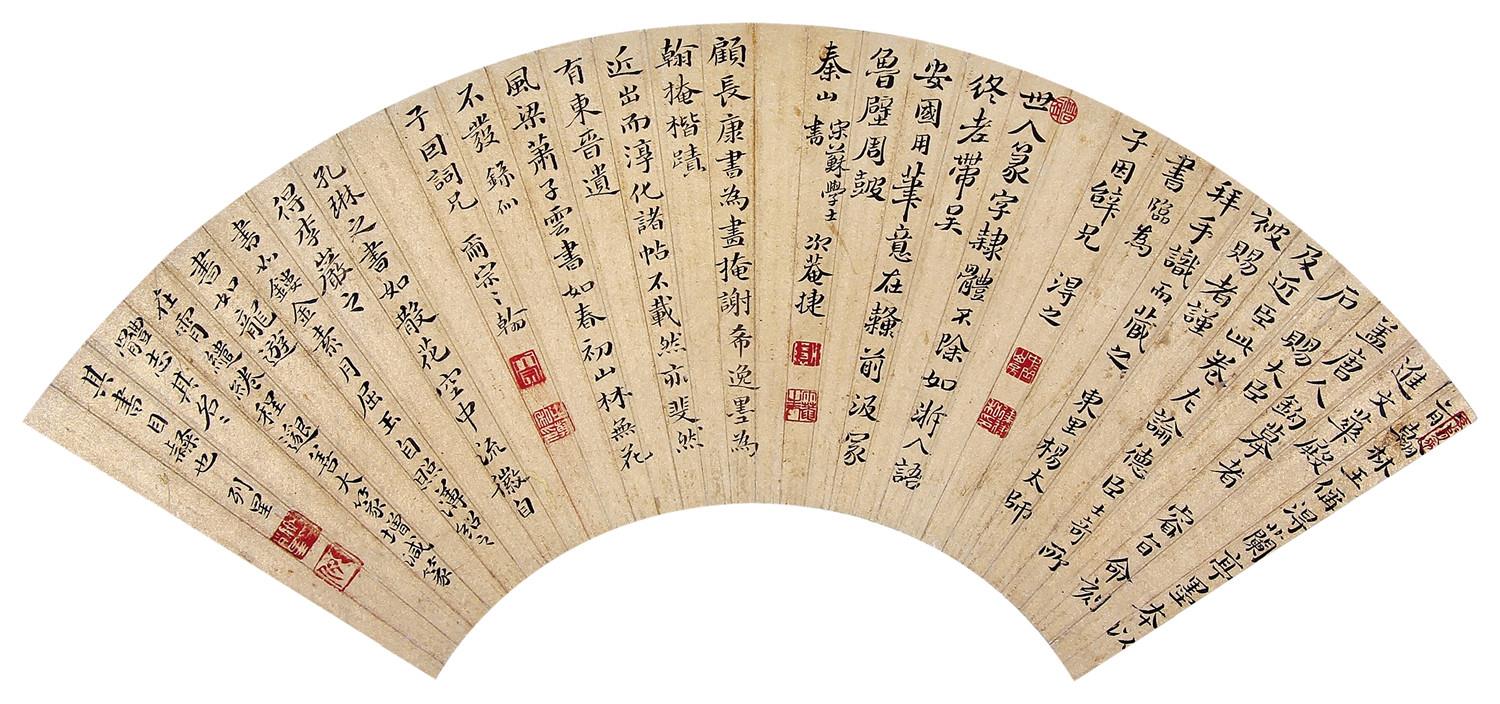 翰林王偁得蘭亭墨本以
進文華殿 睿旨命刻
石 賜大臣
蓋唐人鉤摹者
及近臣此卷左論德臣士奇所
被賜者謹
拜手識而藏之 東里楊太師
書 臨為
子因辭兄 得之
世人篆字隸體不除如浙人語
終老帶吳
安國用筆意在隸前汲冢
魯壁周鼓
秦山 宋蘇學士書 次菴捷
顧長康書為畫掩謝希逸墨為
翰掩楷蹟
近出而淳化諸帖不載然亦斐然
有東晉遺
風梁蕭子雲書如春初山林無花
不發 錄似
子回詞兄 雨宗之翰
孔琳之書如散花空中流徽自
得李巖之
書如鏤金素月屈玉自照薄紹之
書如龍遊
在霄繾綣程邈善大篆增減篆
體去其名之
其書曰隸也 列星